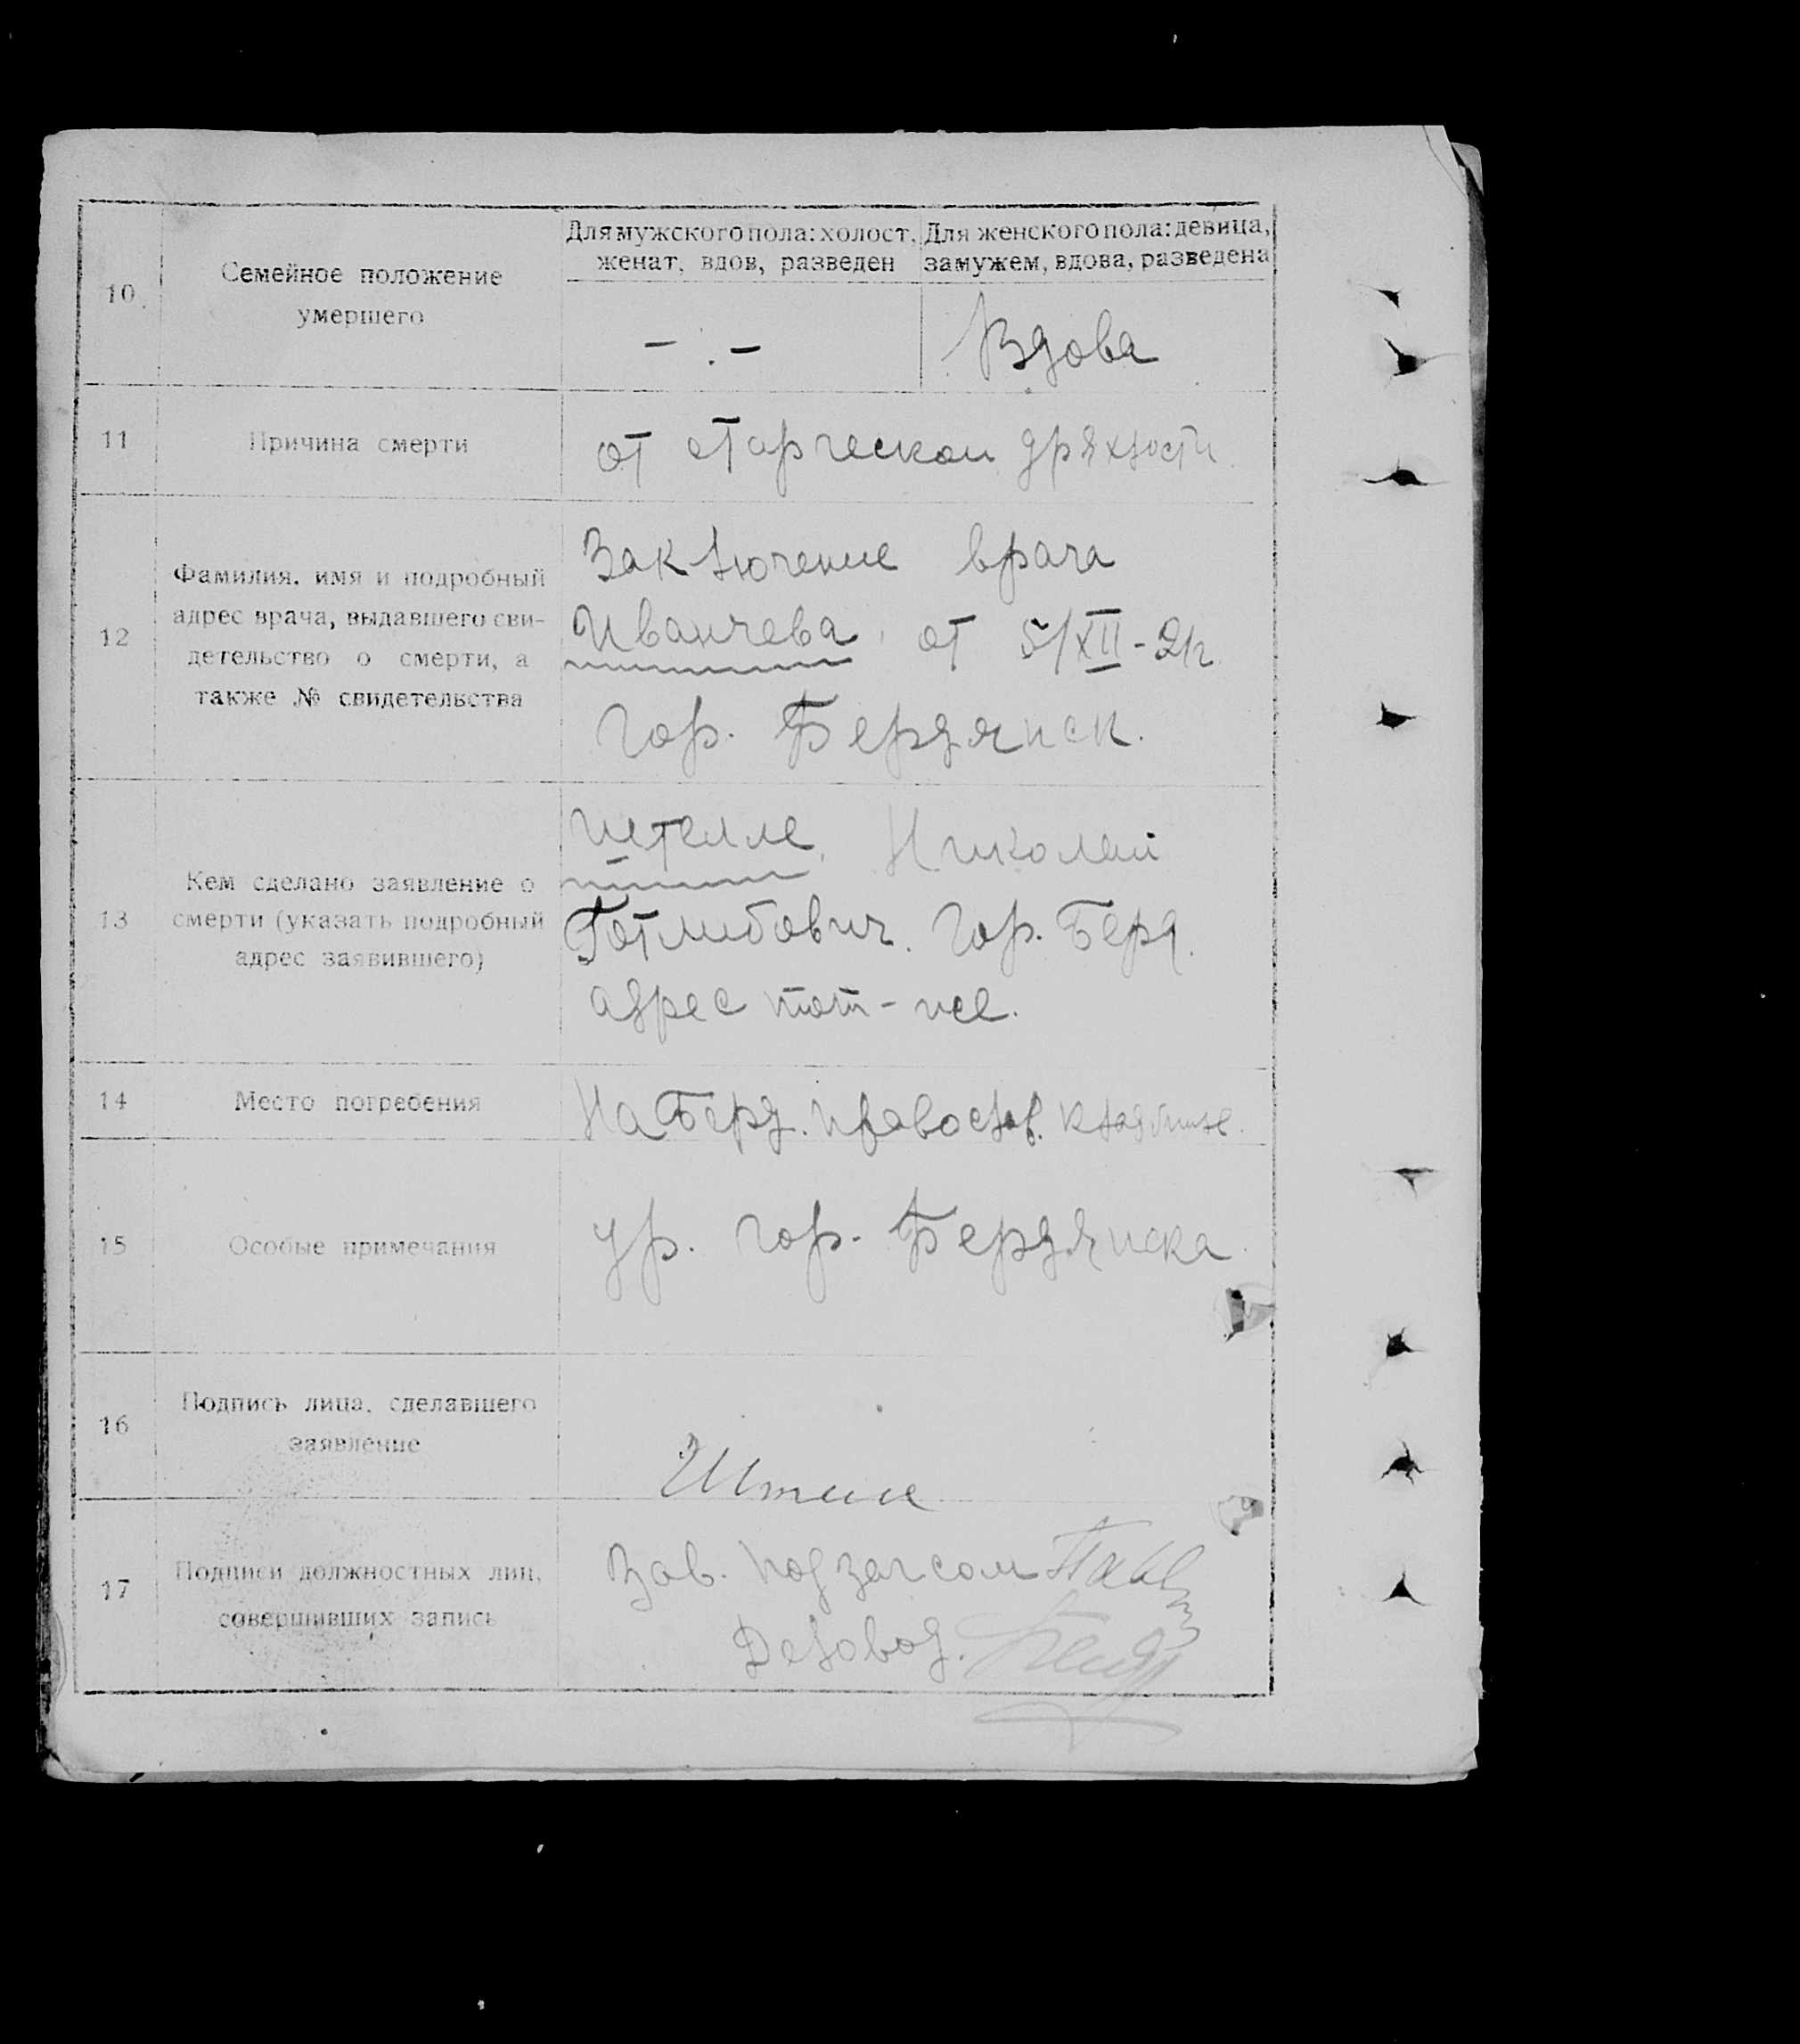 Для мужского пола: холост,
женат, вдов, разведен
Для женского пола: девица,
замужем, вдова, разведена
10
Семейное положение
умершего
— . —
Вдова
11
Причина смерти
от старческой дряхлости
12
Фамилия, имя и подробный
адрес врача, выдавшего сви-
детельство о смерти, а
также № свидетельства
Заключение врача
Иванчева от 5/XII-21г
гор. Бердянск.
13
Кем сделано заявление о
смерти (указать подробный
адрес заявившего)
Николай
Готлибович. гор. Берд.
адрес тот-же.
14
Место погребения
На Берд. православ. кладбище.
15
Особые примечания
ур. гор. Бердянска
16
Подпись лица, сделавшего
заявление
17
Подписи должностных лиц,
совершивших запись
Зав. подзагсом
Деловод.